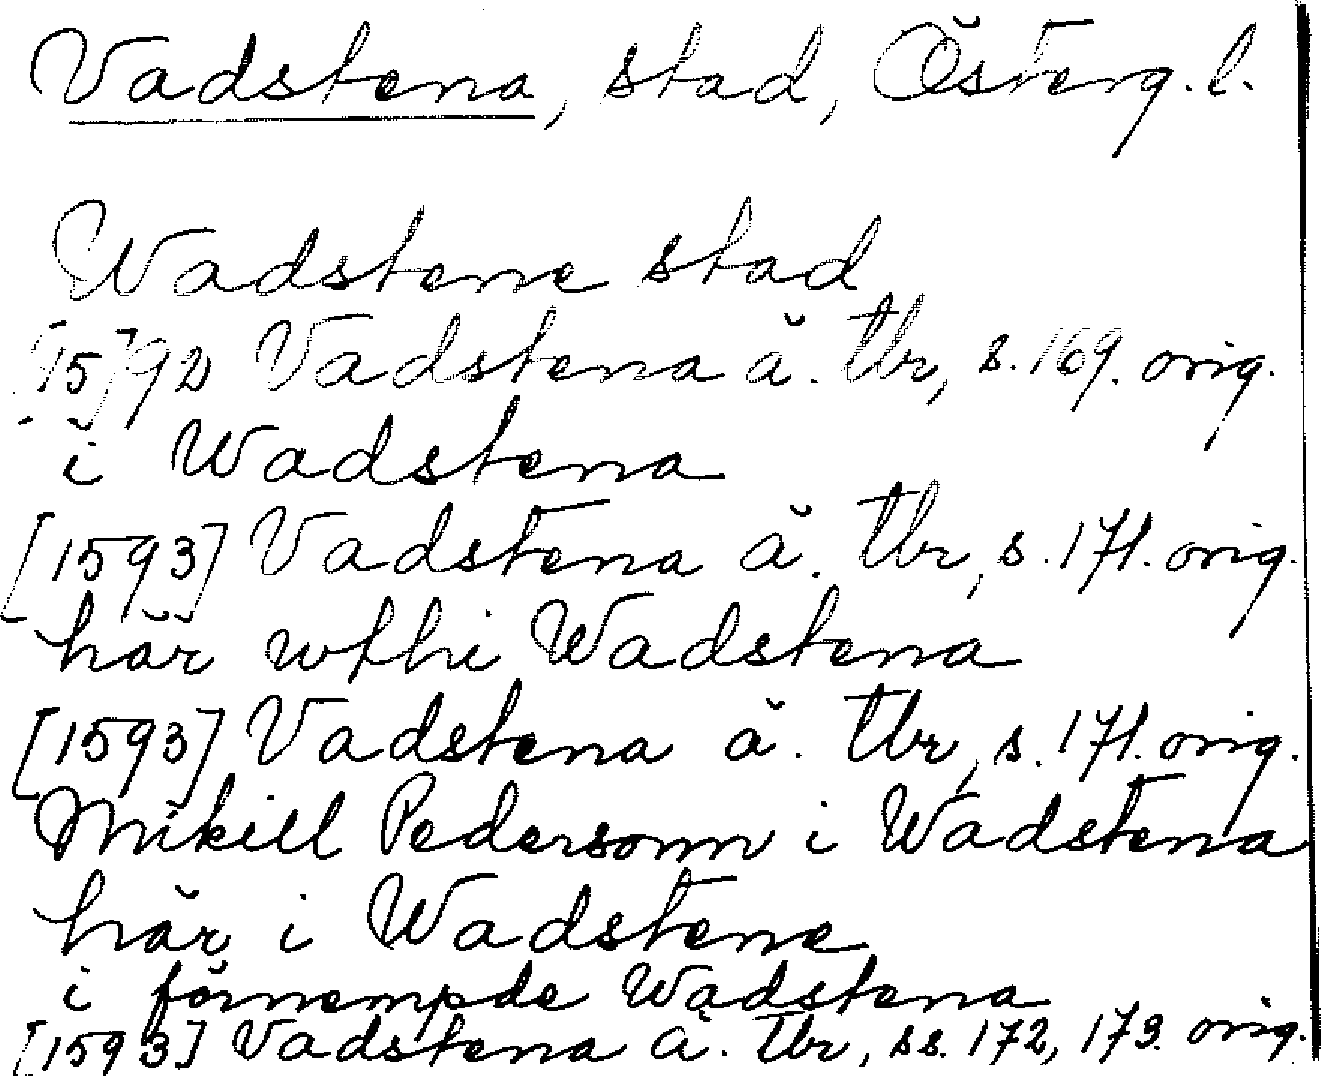 Vadstena, stad, Österg. l.
Wadstene stad
[15]92 Vadstena ä. tbr, s. 169. orig.
i Wadstena
[1593] Vadstena ä. tbr, s. 171. orig.
här wthi Wadstena
[1593] Vadstena ä. tbr, s. 171. orig.
Mikill Pedersonn i Wadstena
här i Wadstene
i förnempde Wadstena
[1593] Vadstena ä. tbr, ss. 172, 173. orig.